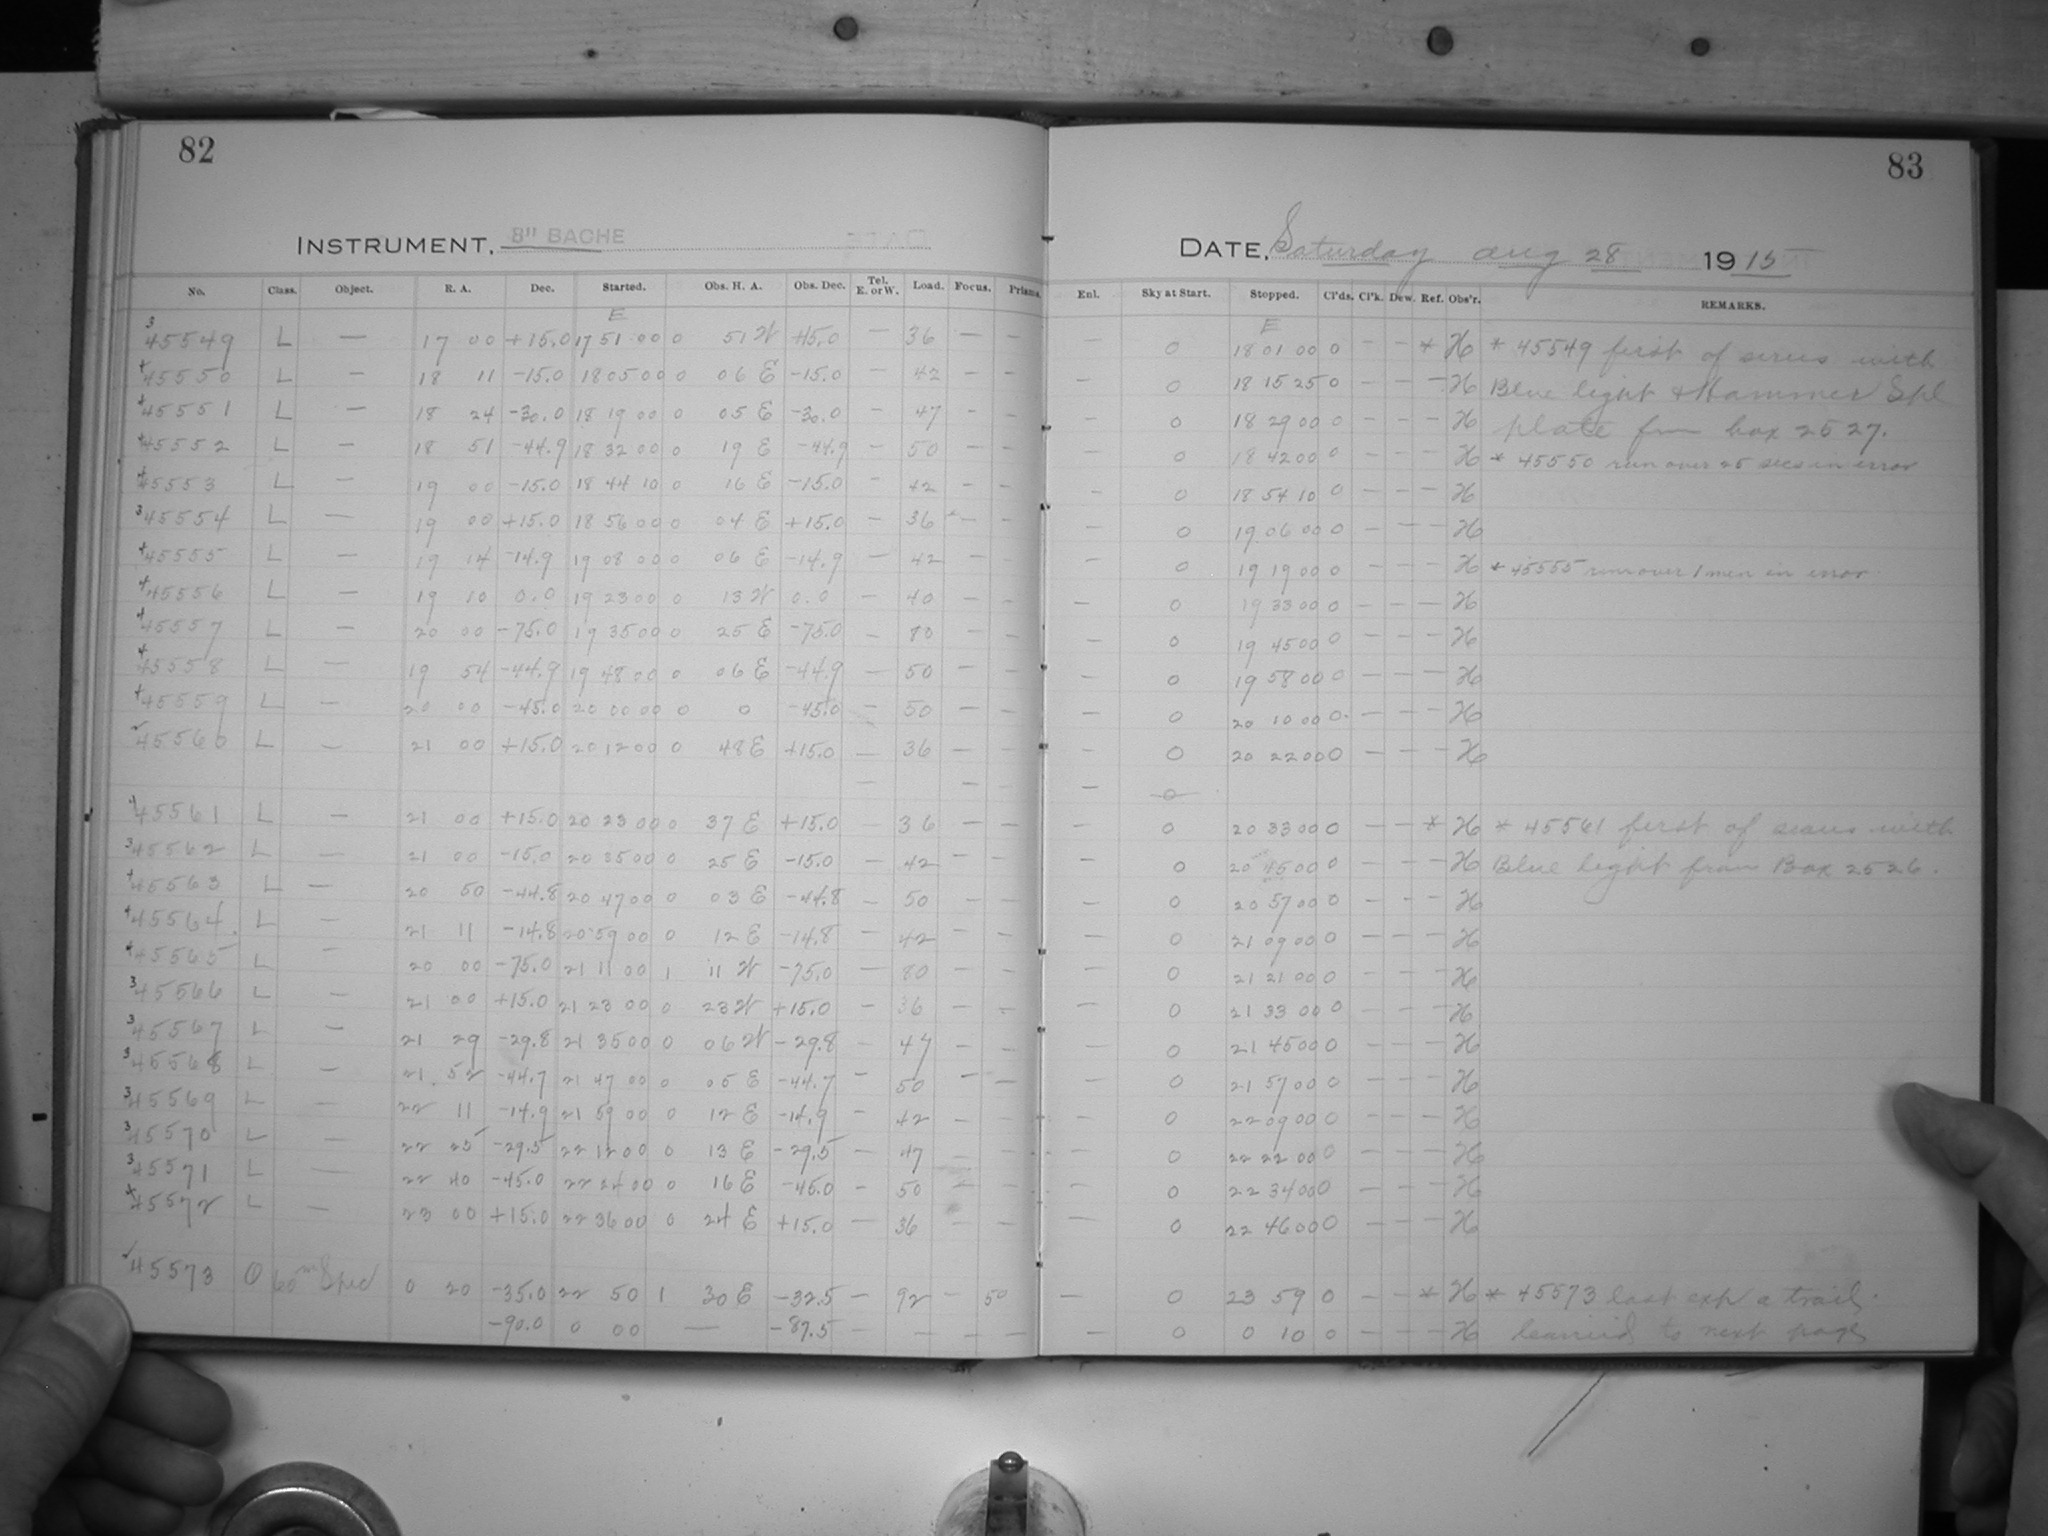 82
INSTRUMENT, 8" BACHE
No. Class. Object. R. A. Dec. Started. Obs. H. A. Obs. Dec. Tel. E. or W. Load. Focus. Prisms.
E
3 45549 L — 17 00 +15.0 17 51 00 0 51 W +15.0 — 36 — —
45550 L — 18 11 -15.0 18 05 00 0 06 E -15.0 — 42 — —
45551 L — 18 24 -30.0 18 19 00 0 05 E -30.0 — 47 — —
45552 L — 18 51 -44.9 18 32 00 0 19 E -44.9 — 50 — —
45553 L — 19 00 -15.0 18 44 10 0 16 E -15.0 — 42 — —
3 45554 L — 19 00 +15.0 18 56 00 0 04 E +15.0 — 36 — —
45555 L — 19 14 -14.9 19 08 00 0 06 E -14.9 — 42 — —
45556 L — 19 10 0.0 19 23 00 0 13 W 0.0 — 40 — —
45557 L — 20 00 -75.0 19 35 00 0 25 E -75.0 — 80 — —
45558 L — 19 54 -44.9 19 48 00 0 06 E -44.9 — 50 — —
45559 L — 20 00 -45.0 20 00 00 0 0 -45.0 — 50 — —
45560 L — 21 00 +15.0 20 12 00 0 48 E +15.0 — 36 — —
— — —
45561 L — 21 00 +15.0 20 23 00 0 37 E +15.0 — 36 — —
3 45562 L — 21 00 -15.0 20 35 00 0 25 E -15.0 — 42 — —
45563 L — 20 50 -44.8 20 47 00 0 03 E -44.8 — 50 — —
45564 L — 21 11 -14.8 20 59 00 0 12 E -14.8 — 42 — —
45565 L — 20 00 -75.0 21 11 00 1 11 W -75.0 — 80 — —
3 45566 L — 21 00 +15.0 21 23 00 0 23 W +15.0 — 36 — —
3 45567 L — 21 29 -29.8 21 35 00 0 06 W -29.8 — 47 — —
3 45568 L — 21 52 -44.7 21 47 00 0 05 E -44.7 — 50 — —
3 45569 L — 22 11 -14.9 21 59 00 0 12 E -14.9 — 42 — —
3 45570 L — 22 25 -29.5 22 12 00 0 13 E -29.5 — 47 — —
3 45571 L — 22 40 -45.0 22 24 00 0 16 E -45.0 — 50 — —
45572 L — 23 00 +15.0 22 36 00 0 24 E +15.0 — 36 — —
45573 O 60m Spec 0 20 -35.0 22 50 1 30 E -32.5 — 92 — 50
-90.0 0 00 — -87.5 — — — —
83
DATE, Saturday Aug 28 1915
Enl. Sky at Start. Stopped. Cl'ds. Cl'k. Dew. Ref. Obs'r. REMARKS.
E
— 0 18 01 00 0 — — * H * 45549 first of series with
— 0 18 15 25 0 — — — H Blue light & Hammer Spl
0 18 29 00 0 — — — H plate from box 2527.
— 0 18 42 00 0 — — — H * 45550 run over 25 secs in error
— 0 18 54 10 0 — — — H
— 0 19 06 00 0 — — — H
— 0 19 19 00 0 — — — H * 45555 run over 1 min in error
— 0 19 33 00 0 — — — H
— 0 19 45 00 0 — — — H
— 0 19 58 00 0 — — — H
— 0 20 10 00 0 — — — H
— 0 20 22 00 0 — — — H
— 0
— 0 20 33 00 0 — — * H * 45561 first of series with
— 0 20 45 00 0 — — — H Blue light from Box 2526.
— 0 20 57 00 0 — — — H
— 0 21 09 00 0 — — — H
— 0 21 21 00 0 — — — H
— 0 21 33 00 0 — — — H
— 0 21 45 00 0 — — — H
— 0 21 57 00 0 — — — H
— 0 22 09 00 0 — — — H
— 0 22 22 00 0 — — — H
— 0 22 34 00 0 — — — H
— 0 22 46 00 0 — — — H
— 0 23 59 0 — — * H * 45573 last exp a trail.
— 0 0 10 0 — — — H carried to next page